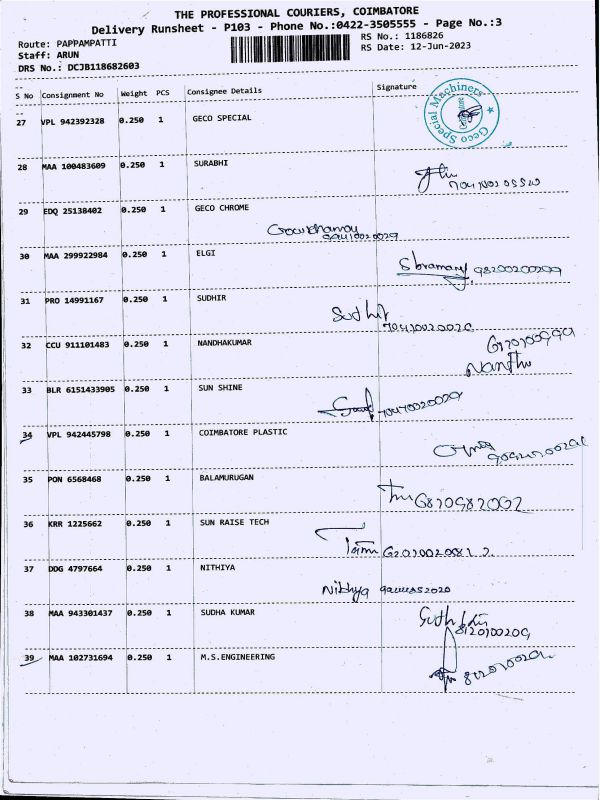 THE PROFESSIONAL COURIERS, COIMBATORE
Delivery Runsheet - P103 - Phone No.:0422-3505555 - Page No.:3
Route: PAPPAMPATTI
Staff: ARUN
DRS No.: DCJB118682603
RS No.: 1186826
RS Date: 12-Jun-2023
S No Consignment No Weight PCS Consignee Details Signature
27 VPL 942392328 0.250 1 GECO SPECIAL
Geco Special Machiners
28 MAA 100483609 0.250 1 SURABHI
29 EDQ 25138402 0.250 1 GECO CHROME
30 MAA 299922984 0.250 1 ELGI
31 PRO 14991167 0.250 1 SUDHIR
Sudhir
32 CCU 911101483 0.250 1 NANDHAKUMAR
Nanthu
33 BLR 6151433905 0.250 1 SUN SHINE
34 VPL 942445798 0.250 1 COIMBATORE PLASTIC
35 PON 6568468 0.250 1 BALAMURUGAN
36 KRR 1225662 0.250 1 SUN RAISE TECH
37 DDG 4797664 0.250 1 NITHIYA
Nithya
38 MAA 943301437 0.250 1 SUDHA KUMAR
39 MAA 102731694 0.250 1 M.S.ENGINEERING